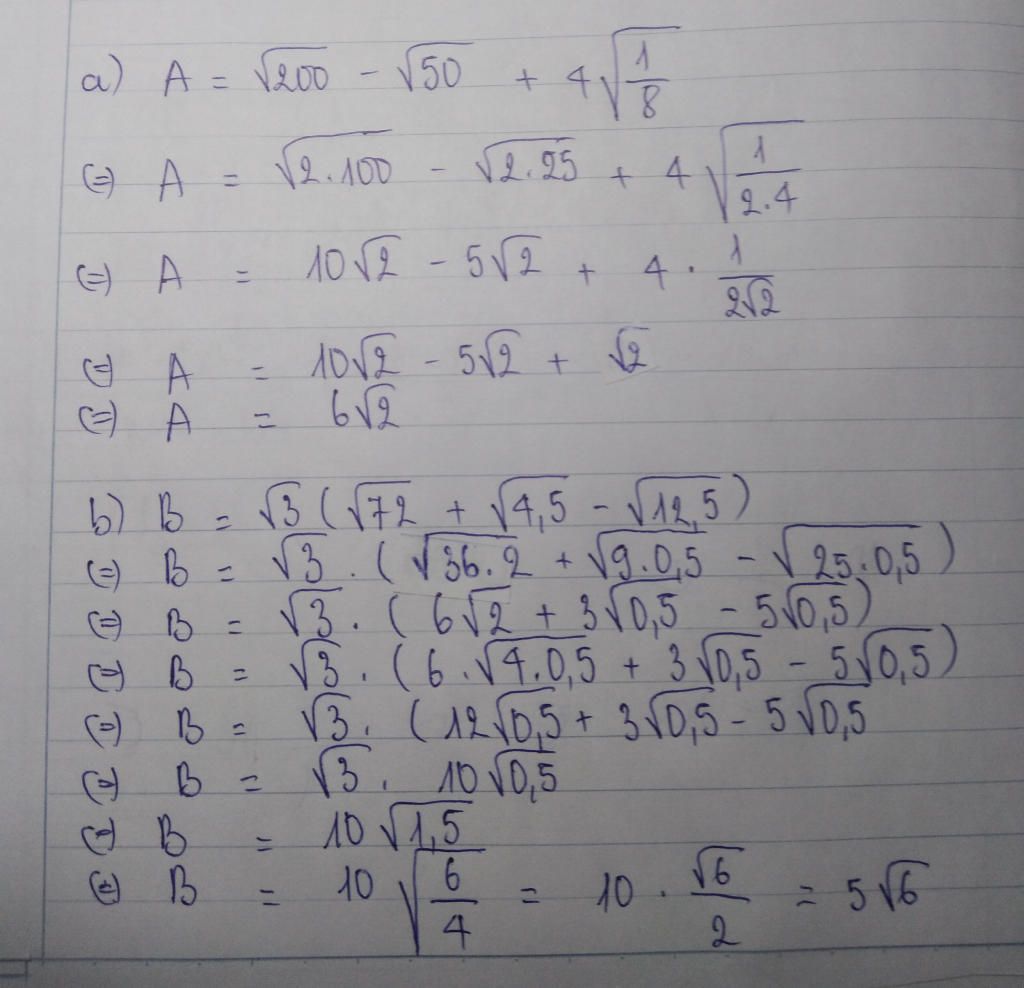 a) A = √200 - √50 + 4√(1/8)
(=) A = √(2.100) - √(2.25) + 4√(1/(2.4))
(=) A = 10√2 - 5√2 + 4 . 1/(2√2)
(=) A = 10√2 - 5√2 + √2
(=) A = 6√2
b) B = √3 (√72 + √4,5 - √12,5)
(=) B = √3 . (√(36.2) + √(9.0,5) - √(25.0,5))
(=) B = √3 . (6√2 + 3√0,5 - 5√0,5)
(=) B = √3 . (6.√(4.0,5) + 3√0,5 - 5√0,5)
(=) B = √3 . (12√0,5 + 3√0,5 - 5√0,5
(=) B = √3 . 10√0,5
(=) B = 10√1,5
(=) B = 10√(6/4) = 10 . √6/2 = 5√6